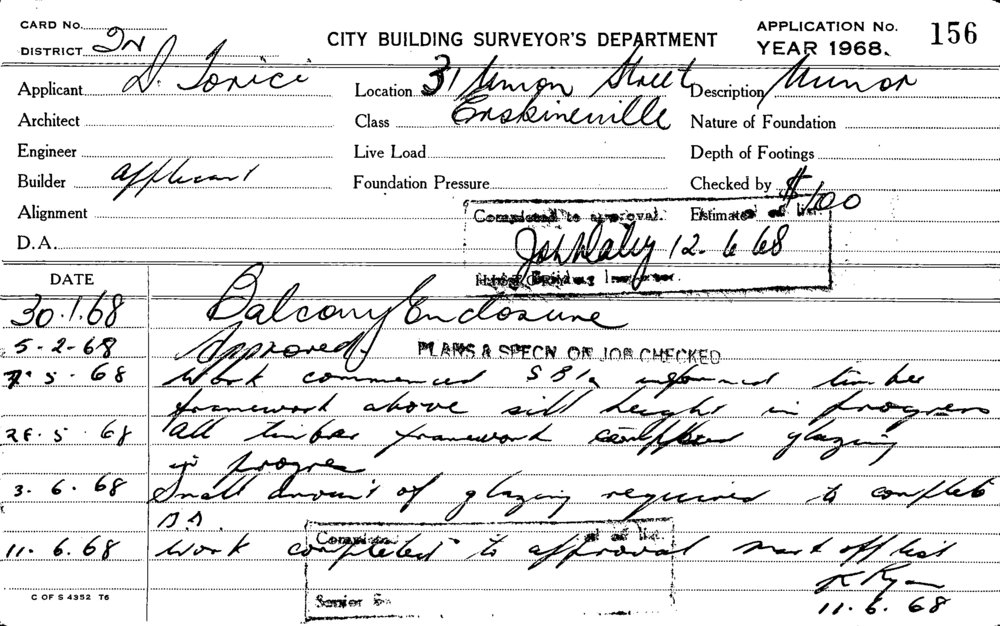 CARD No.
DISTRICT 2N
CITY BUILDING SURVEYOR'S DEPARTMENT
APPLICATION No. 156
YEAR 1968.
Applicant D. Torici
Location 31 Union Street
Erskineville
Description Minor
Architect
Class
Nature of Foundation
Engineer
Live Load
Depth of Footings
Builder applicant
Foundation Pressure
Checked by
Alignment
Completed to approval. of list.
Estimate $100
D.A.
12.6.68
Building Inspector.
DATE
30.1.68 Balcony Enclosure
5-2-68 Approved PLANS & SPECN. ON JOB CHECKED
5-68 Work commenced informed timber
framework above sill height in progress
28.5.68 all timber framework completed glazing
in progress
3.6.68 Small amount of glazing required to complete
11.6.68 Work completed to approval mark off list
K Ryan
11.6.68
Senior
C OF S 4352 T6